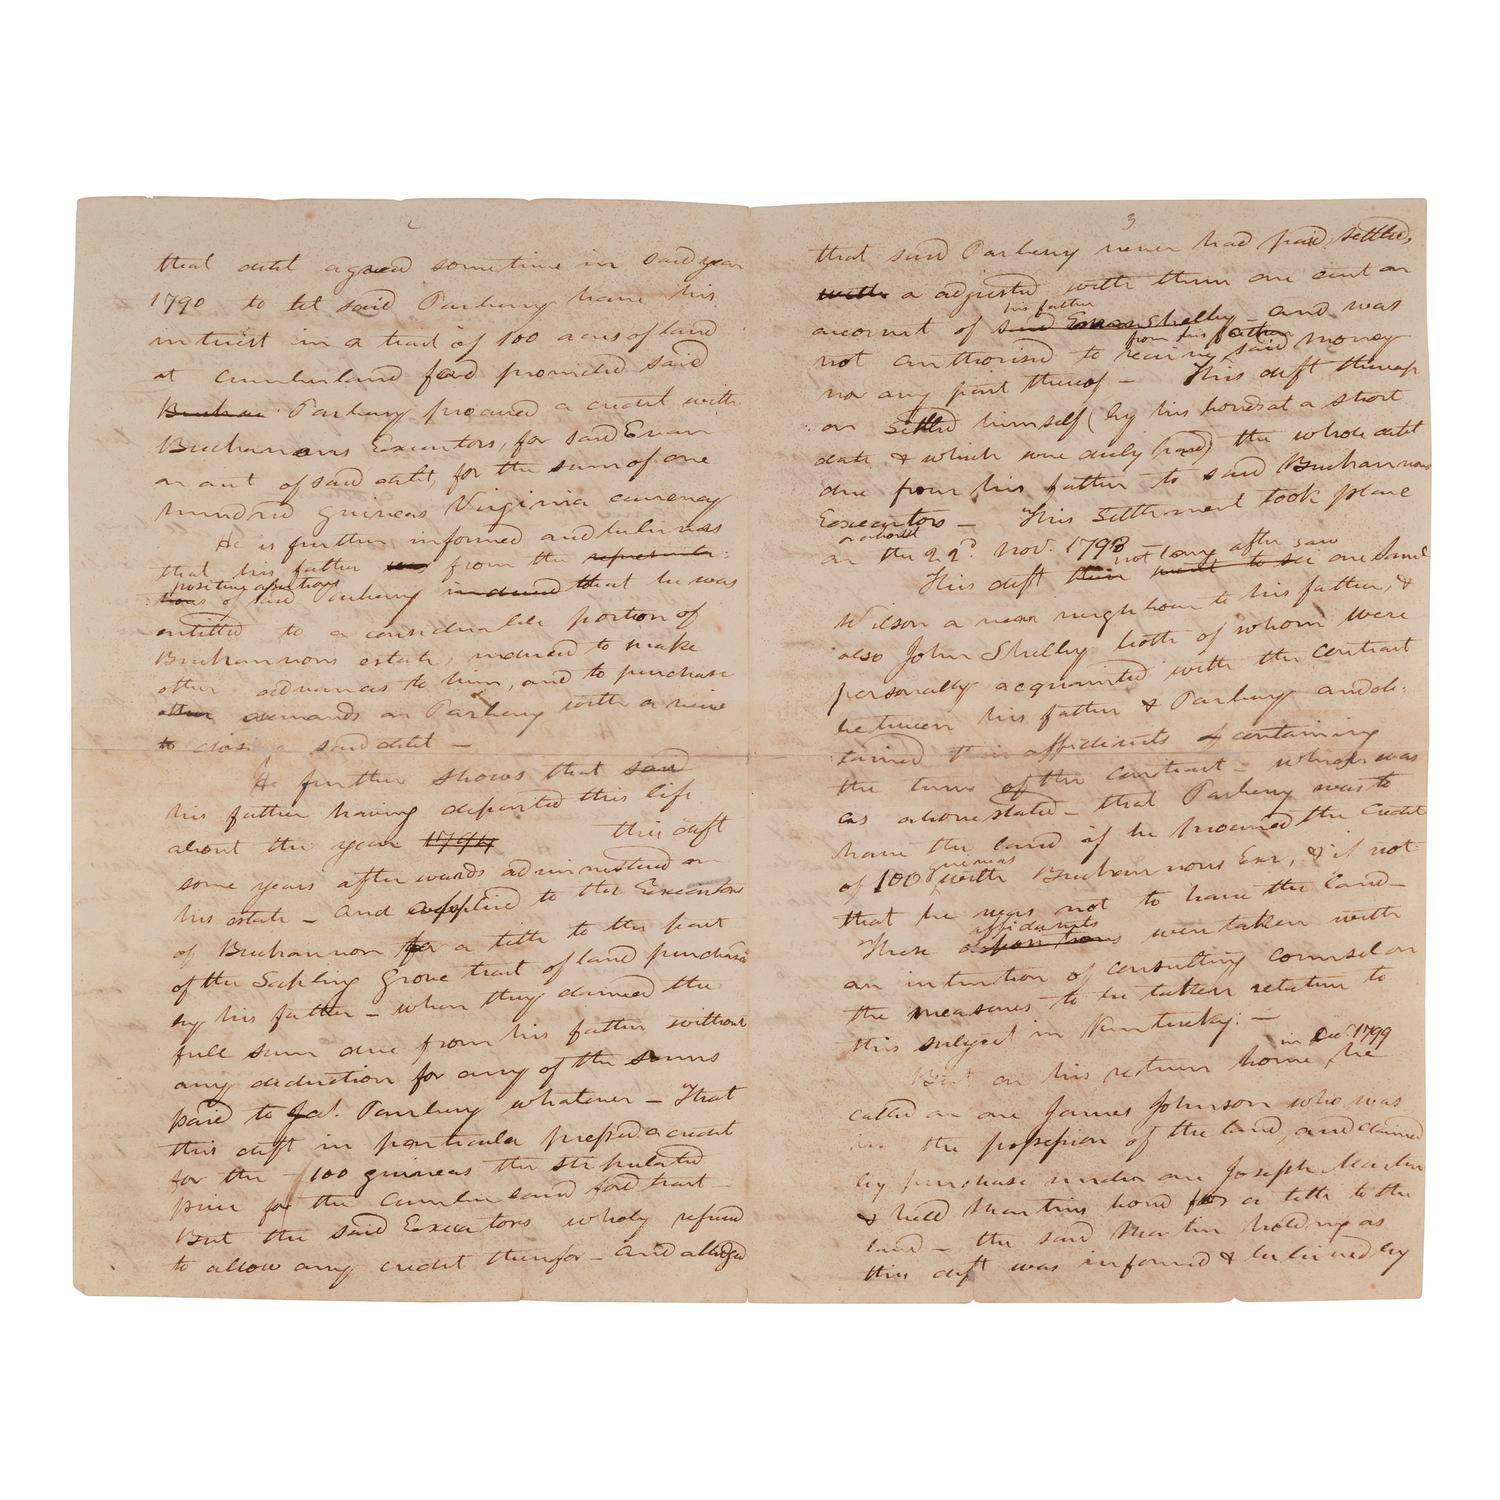 2
that debt agreed sometime in said year
1790 to let said Parberry have his
intrust in a tract of 100 acres of land
at Cumberland ford provided said
Buchan Parberry procured a credit with
Buchannons Executors, for said Evan
on act of said debt, for the sum of one
hundred guineas Virginia currency
He is further informed and believes
that his father was from the representa:
positive assertions
tions of said Parberry induced that he was
entitled to a considerable portion of
Buchannons estate, induced to make
other advances to him, and to purchase
other demands on Parberry with a view
to close said debt —
He further shows that said
his father having departed this life
about the year 1794 this deft
some years afterwards administered on
his estate — and applied to the Executors
of Buchannon for a title to the part
of the Sapling Grove tract of land purchased
by his father — when they claimed the
full sum due from his father without
any deduction for any of the sums
paid to Jas. Parberry whatever — That
this deft in particular pressed a credit
for the 100 guineas the stipulated
price for the Cumberland ford tract —
But the said Executors wholy refused
to allow any credit therefor — and alledged
3
that said Parberry never had paid, settled,
with a adjusted with them one cent on
his father
account of said Evan Shelby — and was
from his father
not authorised to receive said money
nor any part thereof — This deft thereup
on settled himself (by his bonds at a short
date & which were duly paid) the whole debt
due from his father to said Buchannons
Executors — This Settlement took place
or about
on the 22d. Nov. 1798
not long after saw
This deft then went to see one Saml
Wilson a near neighbour to his father, &
also John Shelby both of whom were
personally acquainted with the contract
between his father & Parberry and ob:
tained their affidavits containing
the terms of the contract — which was
as above stated — that Parberry was to
have the land if he procured the credit
guineas
of 100 with Buchannons Exr, & if not
that he was not to have the land —
affidavits
These depositions were taken with
an intention of consulting counsel on
the measures to be taken relation to
this subject in Kentucky. —
in Dec. 1799
But on his return home he
called on one James Johnson who was
in the possession of the land, and claimed
by purchase under one Joseph Martin
& held Martins bond for a title to the
land — the said Martin holding as
this deft was informed & believed by